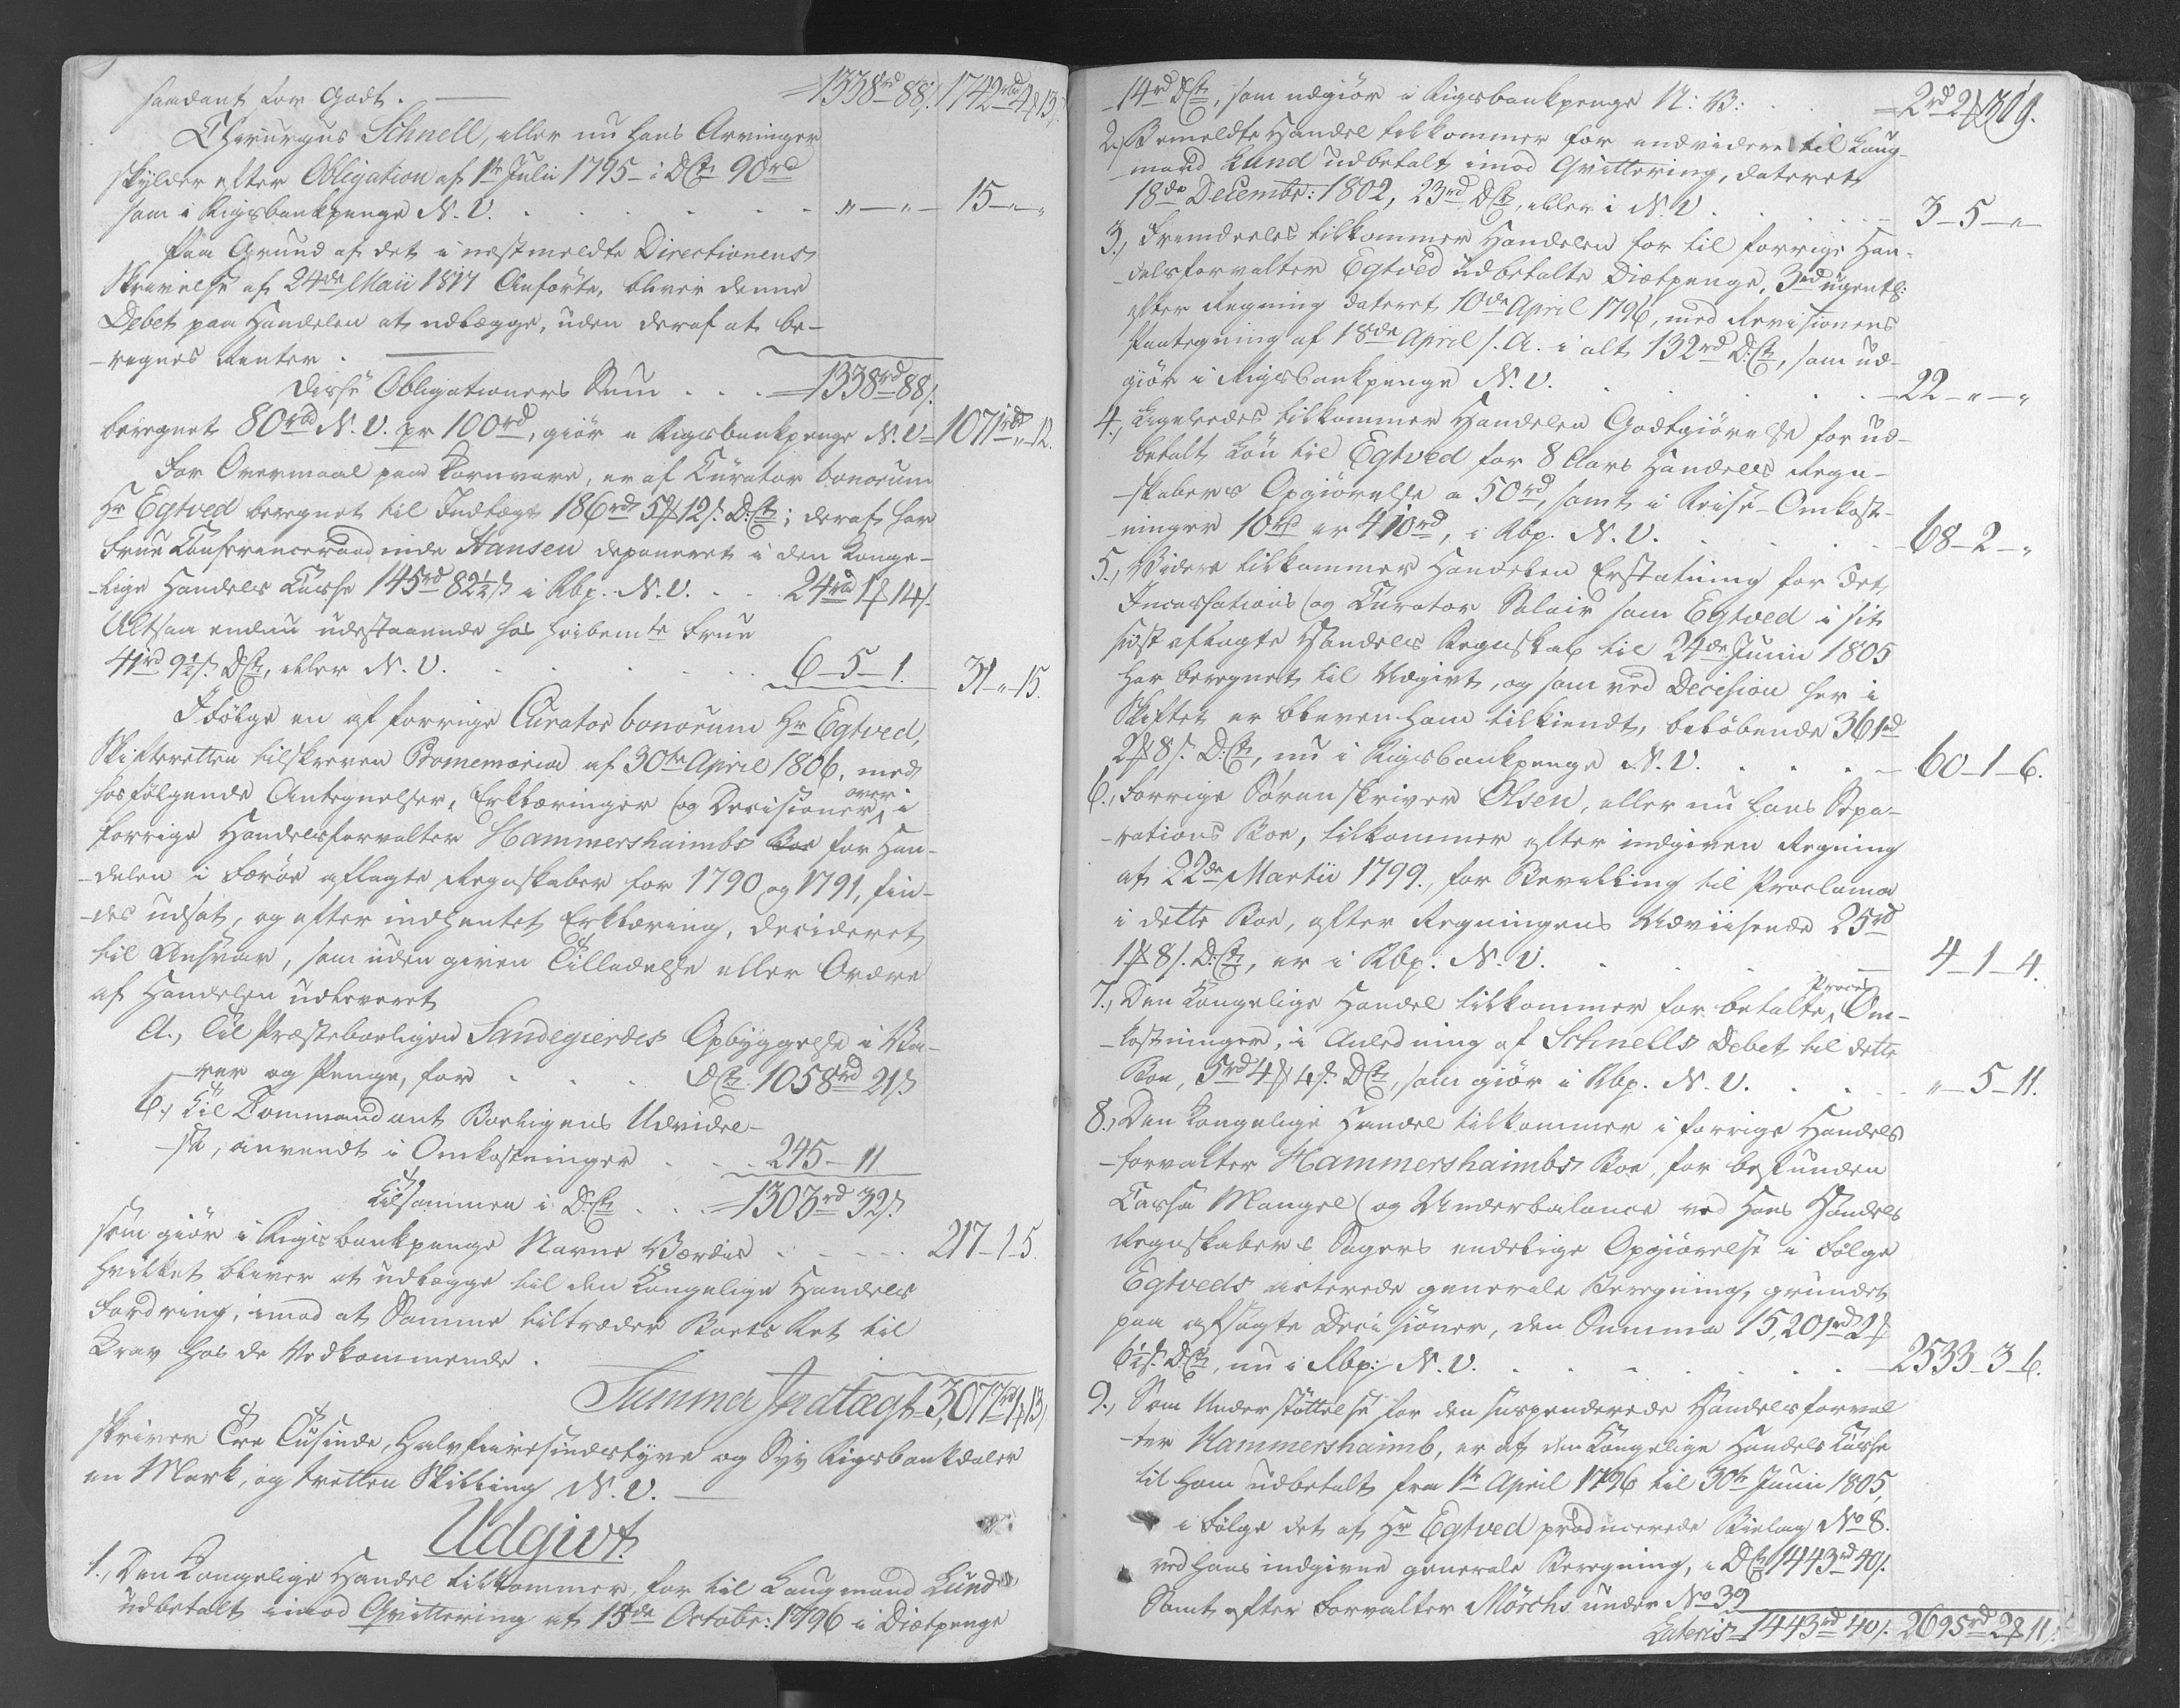 saadant for Godt. — =1338rd 88/. 1742rd 4# 13/.
Chirurgus Schnell, eller nu hans Arvinger
skylder efter Obligation af 1te Julii 1795 - i DCt 90rd
som i Rigsbankpenge N. V. . . . . . . „ — „ — 15 - „ - „
Paa Grund af det i næstmeldte Directionens
Skrivelse af 24de Maii 1817 Anførte, bliver denne
Debet paa Handelen at udlægge, uden deraf at be-
-regnes Renter. —
Disse Obligationers Sum . . . =1338rd 88/.
beregnet 80rd N. V. pr 100rd, giör i Rigsbankpenge N. V= 1071rd „ 12.
For Overmaal paa Kornvare, er af Curator bonorum
Hr Egtved beregnet til Indtægt 186rd 5# 12/. D.Ct; deraf har
Frue Conferenceraadinde Hansen deponeret i den Konge-
-lige Handels Casse 145rd 82½/ i Rbp. N. V. . . 24rd 1# 14/.
Altsaa endnu udestaaende hos høibemte Frue
41rd 9½/. DCt, eller N. V. . . . . 6 - 5 - 1. 31 - „ 15.
Ifölge en af forrige Curator bonorum Hr Egtved,
Skifteretten tilskreven Promemoria af 30te April 1806, med
hosfölgende Antegnelser, Erklæringer og Decisioner over i
forrige Handelsforvalter Hammershaimbs Boe for Han-
-delen i Færöe aflagte Regnskaber for 1790 og 1791, fin-
-des udsat, og efter indhentet Erklæring, decideret
til Ansvar, som uden given Tilladelse eller Ordre
af Handelen udleveret
a., Til Præsteboeligen Sandegierdes Opbyggelse i Va-
-rer og Penge, for . . . DCt. 1058rd 21/
b., Til Commandant Boeligens Udvidel-
-se, anvendt i Omkostninger . . . 245 - 11
Tilsammen i D.Ct . . . =1303rd 32/.
som giör i Rigsbankpenge Navne Værdie . . . . . 217 - 1 - 5.
hvilket bliver at udlægge til den Kongelige Handels
Fordring, imod at Samme tiltræder Boets Ret til
Krav hos de Vedkommende.
Summa Indtægt = 3,077rd 1# 13/.
skriver Tre Tusinde, Halvfierdsindstyve og Syv Rigsbankdaler
en Mark, og tretten Skilling N. V. —
Udgivt.
1., Den Kongelige Handel tilkommer, for til Laugmand Lund
udbetalt imod Qvittering af 15de Octobr: 1796 i Diætpenge
14rd DCt, som udgiör i Rigsbankpenge N: V: . . . =2rd 2# 319.
2., Bemeldte Handel tilkommer for endvidere til Laug-
-mand Lund udbetalt imod Qvittering, dateret
18de Decembr: 1802, 23rd DCt, eller i N. V . . . . 3 - 5 - „ -
3., Fremdeeles tilkommer Handelen for til forrige Han-
delsforvalter Egtved udbetalte Diætpenge, 3rd ugentl:
efter Regning dateret 10de April 1796, med Revisionens
Paategning af 18de April s. A. i alt 132rd D.Ct, som ud-
giör i Rigsbankpenge N. V. . . . . . - 22 - „ - „
4., Ligeledes tilkommer Handelen Godtgiörelse for ud-
betalt Lön til Egtved for 8 Aars Handels Regn-
-skabers Opgiörelse a 50rd, samt i Reise-Omkost-
-ninger 10rd er 410rd, i Rbp. N. V. . . . . 68 - 2 - „
5., Videre tilkommer Handelen Erstatning for det
Incassations og Curator Salair som Egtved i sit
sidst aflagte Handels Regnskab til 24de Junii 1805
har beregnet til Udgivt, og som ved Decision her i
Skiftet er bleven ham tilkiendt, belöbende 361rd
2# 8/. D.Ct, nu i Rigsbankpenge N. V. . . . . 60 - 1 - 6.
6., Forrige Sorenskriver Olsen, eller nu hans Sepa-
-rations Boe, tilkommer efter indgiven Regning
af 22de Martii 1799., for Bevilling til Proclama
i dette Boe, efter Regningens Udviisende 25rd
1# 8/. D.Ct, er i Rbp. N. V. . . . . 4 - 1 - 4.
7., Den Kongelige Handel tilkommer for betalte Proces Om-
-kostninger, i Anledning af Schnells Debet til dette
Boe, 5rd 4# 4/. DCt, som giör i Rbp. N. V. . . . „ - 5 - 11.
8., Den Kongelige Handel tilkommer i forrige Handels
-forvalter Hammershaimbs Boe, for befunden
Cassa Mangel og Underbalance ved Hans Handels
Regnskabers Sagers endelige Opgiörelse i Fölge
Egtveds acterede generale Beregning, grundet
paa afsagte Decisioner, den Summa 15,201rd 2#
6½/. DCt, nu i Rbp: N. V. . . . . . 2533 - 3 - 6.
9., Som Understöttelse for den suspenderede Handelsforval
-ter Hammershaimb, er af den Kongelige Handels Casse
til ham udbetalt fra 1te April 1796 til 30te Junii 1805,
i Fölge det af Hr Egtved producerede Bielag No 8.
ved hans indgivne generale Beregning, i DCt 1443rd 40/.
Samt efter Forvalter Mörchs under No 39
Lateris =1443rd 40/. 2695rd 2# 11/.